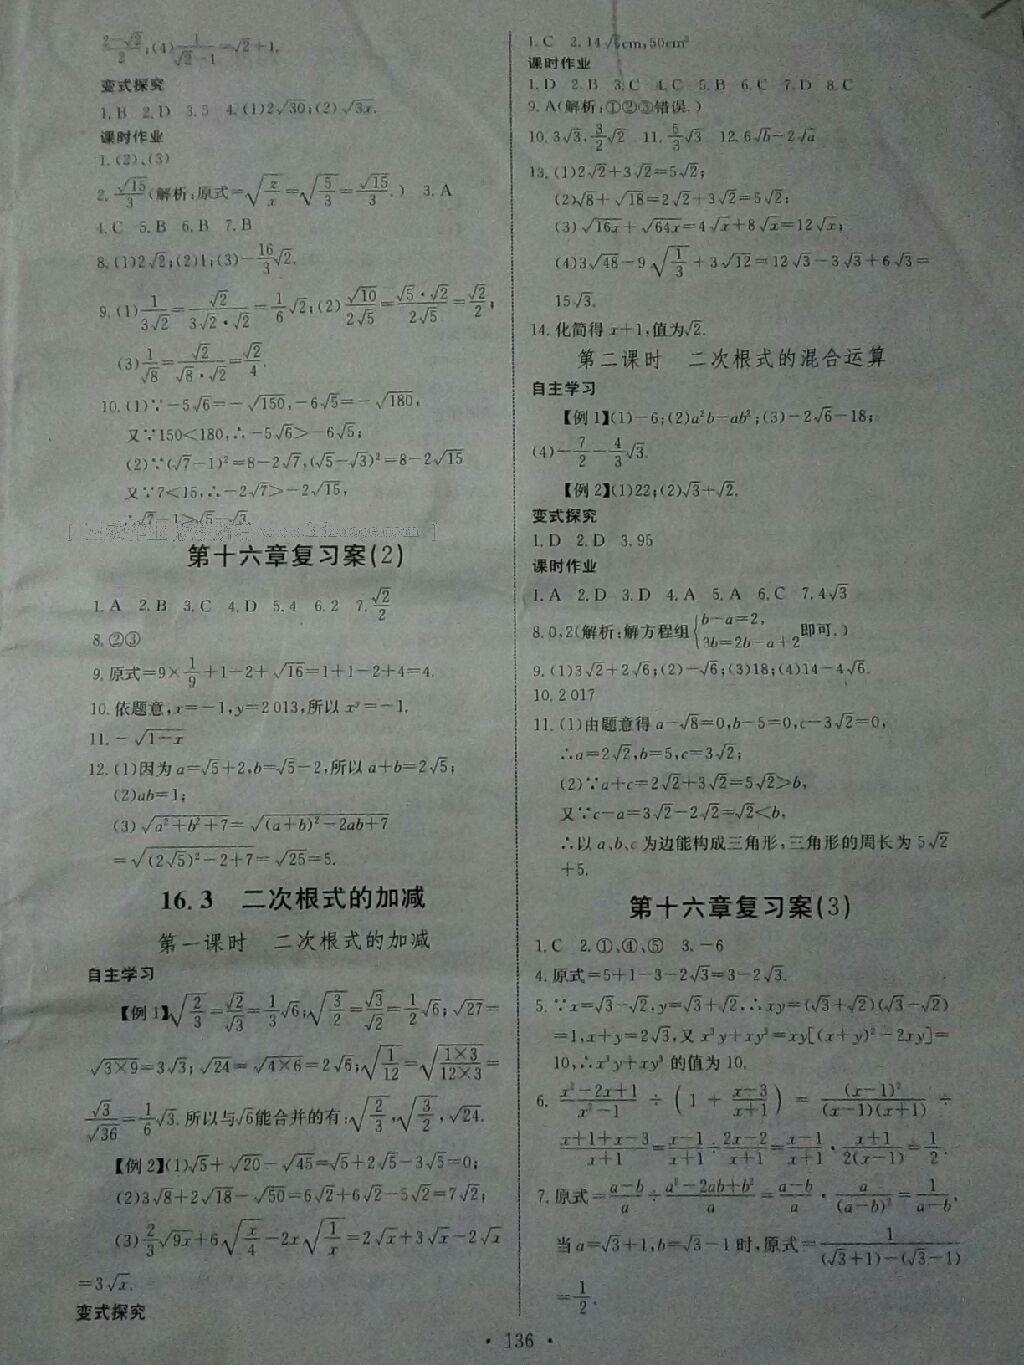 $\frac{2-\sqrt{2}}{2}$;(4)$\frac{1}{\sqrt{2}-1}=\sqrt{2}+1$.
变式探究
1.B 2.D 3.5 4.(1)$2\sqrt{30}$;(2)$\sqrt{3x}$.
课时作业
1.(2)、(3)
2.$\frac{\sqrt{15}}{3}$(解析:原式=$\sqrt{\frac{z}{x}}=\sqrt{\frac{5}{3}}=\frac{\sqrt{15}}{3}$.) 3.A
4.C 5.B 6.B 7.B
8.(1)$2\sqrt{2}$;(2)1;(3)$-\frac{16}{3}\sqrt{2}$.
9.(1)$\frac{1}{3\sqrt{2}}=\frac{\sqrt{2}}{3\sqrt{2}\cdot\sqrt{2}}=\frac{1}{6}\sqrt{2}$;(2)$\frac{\sqrt{10}}{2\sqrt{5}}=\frac{\sqrt{5}\cdot\sqrt{2}}{2\sqrt{5}}=\frac{\sqrt{2}}{2}$;
(3)$\frac{1}{\sqrt{8}}=\frac{\sqrt{2}}{\sqrt{8}\cdot\sqrt{2}}=\frac{\sqrt{2}}{4}$.
10.(1)∵$-5\sqrt{6}=-\sqrt{150}$,$-6\sqrt{5}=-\sqrt{180}$,
又∵150<180,∴$-5\sqrt{6}>-6\sqrt{5}$;
(2)∵$(\sqrt{7}-1)^2=8-2\sqrt{7}$,$(\sqrt{5}-\sqrt{3})^2=8-2\sqrt{15}$
又∵7<15,∴$-2\sqrt{7}>-2\sqrt{15}$,
∴$\sqrt{7}-1>\sqrt{5}-\sqrt{3}$.
第十六章复习案(2)
1.A 2.B 3.C 4.D 5.4 6.2 7.$\frac{\sqrt{2}}{2}$
8.②③
9.原式=$9\times\frac{1}{9}+1-2+\sqrt{16}=1+1-2+4=4$.
10.依题意,x=-1,y=2 013,所以$x^y=-1$.
11.$-\sqrt{1-x}$
12.(1)因为$a=\sqrt{5}+2$,$b=\sqrt{5}-2$,所以$a+b=2\sqrt{5}$;
(2)ab=1;
(3)$\sqrt{a^2+b^2+7}=\sqrt{(a+b)^2-2ab+7}$
$=\sqrt{(2\sqrt{5})^2-2+7}=\sqrt{25}=5$.
16.3 二次根式的加减
第一课时 二次根式的加减
自主学习
【例1】$\sqrt{\frac{2}{3}}=\frac{\sqrt{2}}{\sqrt{3}}=\frac{1}{3}\sqrt{6}$;$\sqrt{\frac{3}{2}}=\frac{\sqrt{3}}{\sqrt{2}}=\frac{1}{2}\sqrt{6}$;$\sqrt{27}=$
$\sqrt{3\times9}=3\sqrt{3}$;$\sqrt{24}=\sqrt{4\times6}=2\sqrt{6}$;$\sqrt{\frac{1}{12}}=\sqrt{\frac{1\times3}{12\times3}}=$
$\frac{\sqrt{3}}{\sqrt{36}}=\frac{1}{6}\sqrt{3}$.所以与$\sqrt{6}$能合并的有:$\sqrt{\frac{2}{3}}$,$\sqrt{\frac{3}{2}}$,$\sqrt{24}$.
【例2】(1)$\sqrt{5}+\sqrt{20}-\sqrt{45}=\sqrt{5}+2\sqrt{5}-3\sqrt{5}=0$;
(2)$3\sqrt{8}+2\sqrt{18}-\sqrt{50}=6\sqrt{2}+6\sqrt{2}-5\sqrt{2}=7\sqrt{2}$;
(3)$\frac{2}{3}\sqrt{9x}+6\sqrt{\frac{x}{4}}-2x\sqrt{\frac{1}{x}}=2\sqrt{x}+3\sqrt{x}-2\sqrt{x}$
$=3\sqrt{x}$.
变式探究
1.C 2.$14\sqrt{5}$cm,50cm²
课时作业
1.D 2.B 3.C 4.C 5.B 6.C 7.D 8.C
9.A(解析:①②③错误.)
10.$3\sqrt{3}$,$\frac{3}{2}\sqrt{2}$ 11.$\frac{5}{3}\sqrt{3}$ 12.$6\sqrt{b}-2\sqrt{a}$
13.(1)$2\sqrt{2}+3\sqrt{2}=5\sqrt{2}$;
(2)$\sqrt{8}+\sqrt{18}=2\sqrt{2}+3\sqrt{2}=5\sqrt{2}$;
(3)$\sqrt{16x}+\sqrt{64x}=4\sqrt{x}+8\sqrt{x}=12\sqrt{x}$;
(4)$3\sqrt{48}-9\sqrt{\frac{1}{3}}+3\sqrt{12}=12\sqrt{3}-3\sqrt{3}+6\sqrt{3}=$
$15\sqrt{3}$.
14.化简得x+1,值为$\sqrt{2}$.
第二课时 二次根式的混合运算
自主学习
【例1】(1)-6;(2)$a^2b-ab^2$;(3)$-2\sqrt{6}-18$;
(4)$-\frac{7}{2}-\frac{4}{3}\sqrt{3}$.
【例2】(1)22;(2)$\sqrt{3}+\sqrt{2}$.
变式探究
1.D 2.D 3.95
课时作业
1.A 2.D 3.D 4.A 5.A 6.C 7.$4\sqrt{3}$
8.0,2(解析:解方程组$\begin{cases}b-a=2,\\3b=2b-a+2\end{cases}$即可.)
9.(1)$3\sqrt{2}+2\sqrt{6}$;(2)$-\sqrt{6}$;(3)18;(4)$14-4\sqrt{6}$.
10.2 017
11.(1)由题意得$a-\sqrt{8}=0$,$b-5=0$,$c-3\sqrt{2}=0$,
∴$a=2\sqrt{2}$,b=5,$c=3\sqrt{2}$;
(2)∵$a+c=2\sqrt{2}+3\sqrt{2}=5\sqrt{2}>b$,
又∵$c-a=3\sqrt{2}-2\sqrt{2}=\sqrt{2}<b$,
∴以a、b、c为边能构成三角形,三角形的周长为$5\sqrt{2}$
+5.
第十六章复习案(3)
1.C 2.①、④、⑤ 3.-6
4.原式=$5+1-3-2\sqrt{3}=3-2\sqrt{3}$.
5.∵$x=\sqrt{3}-\sqrt{2}$,$y=\sqrt{3}+\sqrt{2}$,∴$xy=(\sqrt{3}+\sqrt{2})(\sqrt{3}-\sqrt{2})$
=1,$x+y=2\sqrt{3}$,又$x^3y+xy^3=xy[(x+y)^2-2xy]=$
10,∴$x^3y+xy^3$的值为10.
6.$\frac{x^2-2x+1}{x^2-1}\div\left(1+\frac{x-3}{x+1}\right)=\frac{(x-1)^2}{(x-1)(x+1)}\div$
$\frac{x+1+x-3}{x+1}=\frac{x-1}{x+1}\div\frac{2x-2}{x+1}=\frac{x-1}{x+1}\cdot\frac{x+1}{2(x-1)}=\frac{1}{2}$.
7.原式=$\frac{a-b}{a}\div\frac{a^2-2ab+b^2}{a}=\frac{a-b}{a}\cdot\frac{a}{(a-b)^2}=\frac{1}{a-b}$,
当$a=\sqrt{3}+1$,$b=\sqrt{3}-1$时,原式=$\frac{1}{(\sqrt{3}+1)-(\sqrt{3}-1)}$
$=\frac{1}{2}$.
• 136 •